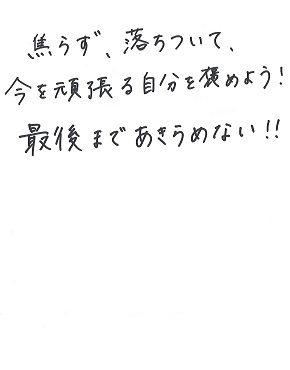 焦らず、落ちついて、
今を頑張る自分を褒めよう!
最後まであきらめない!!